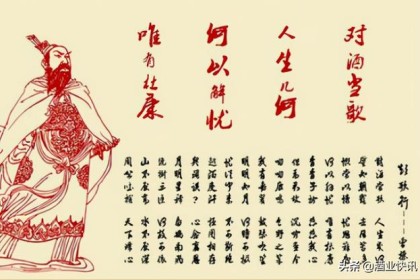 对酒当歌
人生几何
何以解忧
唯有杜康
短歌行——曹操
对酒当歌 人生几何
譬如朝露 去日苦多
慨当以慷 忧思难忘
何以解忧 唯有杜康
青青子衿 悠悠我心
但为君故 沉吟至今
呦呦鹿鸣 食野之苹
我有嘉宾 鼓瑟吹笙
明明如月 何时可掇
忧从中来 不可断绝
越陌度阡 枉用相存
契阔谈䜩 心念旧恩
月明星稀 乌鹊南飞
绕树三匝 何枝可依
山不厌高 水不厌深
周公吐哺 天下归心
头条 @酒业快讯